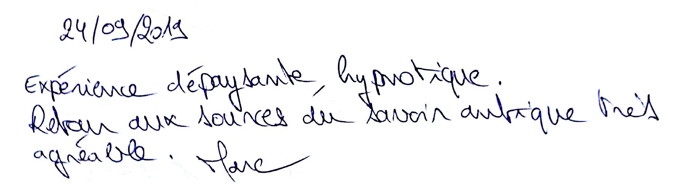 24/09/2019
Expérience dépaysante, hypnotique.
Retour aux sources du savoir antique très
agréable. Marc